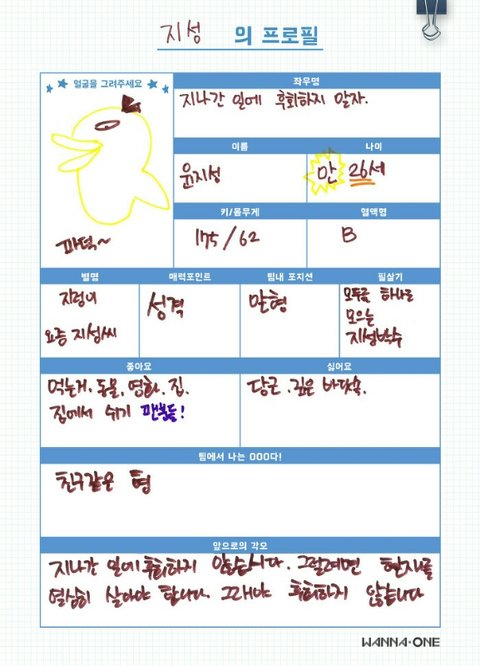 지성 의 프로필
얼굴을 그려주세요
파덕~
좌우명
지나간 일에 후회하지 말자.
이름
나이
윤지성
만 26세
키/몸무게
혈액형
175/62
B
별명
매력포인트
팀내 포지션
필살기
요즘 지성씨
성격
맏형
모두를 하나로
모으는
지성박수
좋아요
싫어요
먹는거. 동물. 영화. 집.
집에서 쉬기 팬분들!
당근. 깊은 바닷속.
팀에서 나는 OOO다!
친구같은 형
앞으로의 각오
지나간 일에 후회하지 않습니다. 그럴려면 현재를
열심히 살아야 합니다. 그래야 후회하지 않습니다
WANNA·ONE